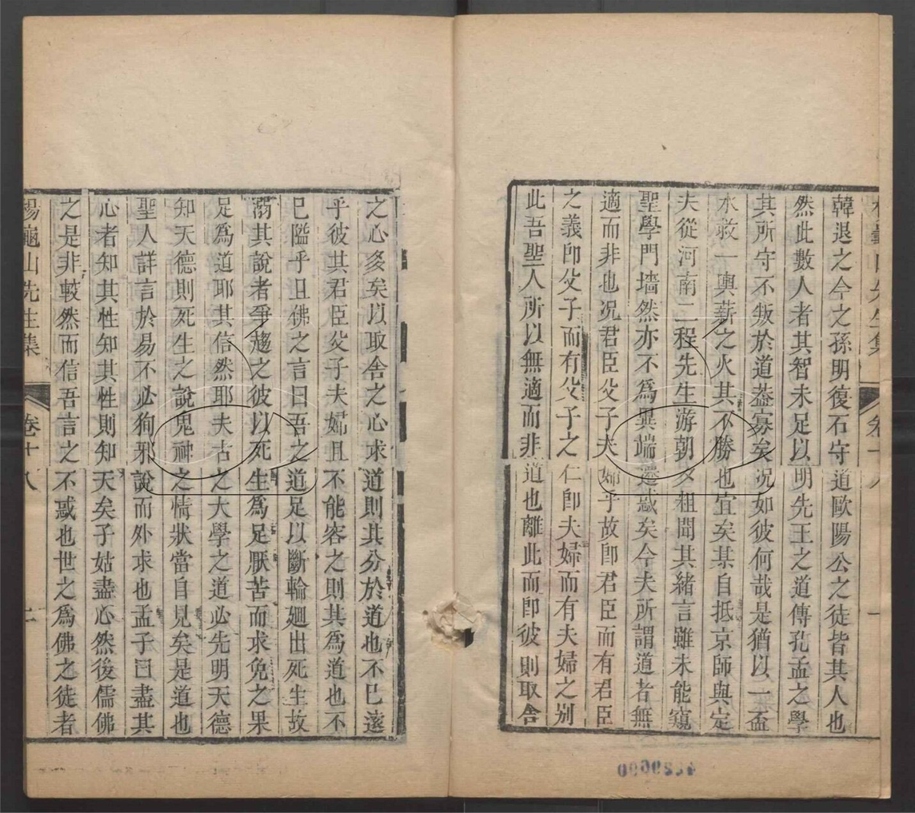 韓退之今之孫明復石守道歐陽公之徒皆其人也
然此數人者其智未足以明先王之道傳孔孟之學
其所守不叛於道葢寡矣况如彼何哉是猶以一盃
水救一輿薪之火其不勝也宜矣某自抵京師與定
夫從河南二程先生游朝夕粗聞其緒言雖未能窺
聖學門墻然亦不爲異端遷惑矣今夫所謂道者無
適而非也况君臣父子夫婦乎故卽君臣而有君臣
之義卽父子而有父子之仁卽夫婦而有夫婦之别
此吾聖人所以無適而非道也離此而卽彼則取舍
之心多矣以取舍之心求道則其分於道也不已遠
乎彼其君臣父子夫婦且不能容之則其爲道也不
已隘乎且佛之言曰吾之道足以斷輪廻出死生故
溺其說者爭趨之彼以死生爲足厭苦而求免之果
足爲道耶其信然耶夫古之大學之道必先明天德
知天德則死生之說鬼神之情狀當自見矣是道也
聖人詳言於易不必狥邪說而外求也孟子曰盡其
心者知其性知其性則知天矣子姑盡心然後儒佛
之是非較然而信吾言之不惑也世之爲佛之徒者
楊龜山先生集
卷十八